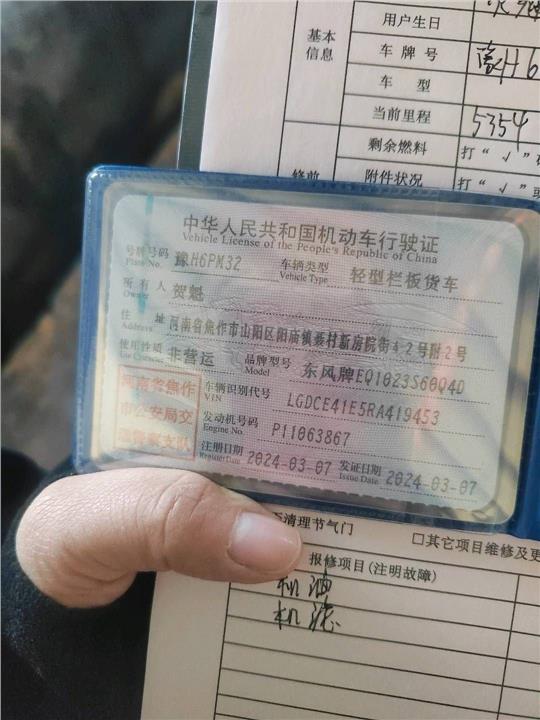 用户生日
基本
信息
车牌号
车型
当前里程
5354
剩余燃料
打"√"
修前
附件状况
打"√"或
中华人民共和国机动车行驶证
Vehicle License of the People's Republic of China
号牌号码 豫H6PM32 车辆类型 轻型栏板货车
Plate No. Vehicle Type
所有人 贺魁
Owner
住址 河南省焦作市山阳区阳庙镇聂村新房院街42号附2号
Address
使用性质 非营运 品牌型号 东风牌EQ1023S60Q4D
Use Character Model
河南省焦作
市公安局交
通警察支队
车辆识别代号 LGDCE41E5RA419453
VIN
发动机号码 P11063867
Engine No.
注册日期 2024-03-07 发证日期 2024-03-07
Register Date Issue Date
清理节气门
□其它项目维修及更
报修项目(注明故障)
机油
机滤